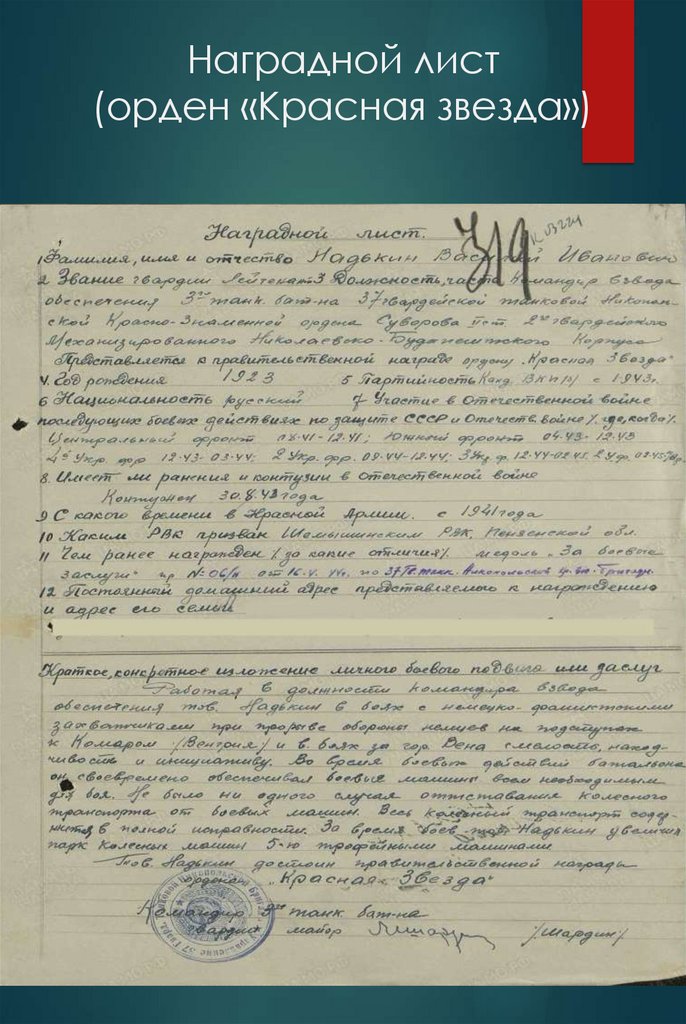 Наградной лист
(орден «Красная звезда»)
Наградной лист.
319
1. Фамилия, имя и отчество Надькин Василий Иванович
2 Звание гвардии Лейтенант 3 Должность, часть Командир взвода
обеспечения 3го танк. бат-на 37 гвардейской танковой Никополь-
ской Красно-Знаменной ордена Суворова II ст 2го гвардейского
Механизированного Николаевско-Будапештского Корпуса
Представляется к правительственной награде ордену „Красная Звезда"
4. Год рождения 1923 5 Партийность Канд. ВКП(б) с 1943г.
6 Национальность русский 7 Участие в Отечественной войне
последующих боевых действиях по защите СССР и Отечеств. войне /. где, когда/.
Центральный фронт 08-41-12.41; Южный фронт 04.43-12.43
4й Укр. фр 12.43-03.44; 2 Укр. фр. 09.44-12.44; 3 Укр. ф. 12.44-02.45. 2 Уф. 02.45-
8. Имеет ли ранения и контузии в отечественной войне
Контужен 30.8.43 года
9 С какого времени в Красной Армии. с 1941 года
10 Каким РВК призван Шемышинским РВК, Пензенской обл.
11 Чем ранее награжден /. за какие отличия/. медаль „За боевые
заслуги" пр № 06/н от 16.V. 44г. по 37 Гв. танк. Никопольской
12. Постоянный домашний адрес представляемого к награждению
и адрес его семьи
Краткое, конкретное изложение личного боевого подвига или заслуг
Работая в должности командира взвода
обеспечения тов. Надькин в боях с немецко-фашистскими
захватчиками при прорыве обороны немцев на подступах
к Комаром /Венгрия/ и в боях за гор. Вена смелость, наход-
чивость и инициативу. Во время боевых действий батальона
он своевремено обеспечивал боевые машины всем необходимым
для боя. Не было ни одного случая отставания колесного
транспорта от боевых машин. Весь колесный транспорт содер-
жится в полной исправности. За время боев тов Надькин увеличил
парк колесных машин 5-ю трофейными машинами.
Тов. Надькин достоин правительственной награды
ордена „Красная Звезда"
Командир 3го танк бат-на
гвардии майор /Шардин/